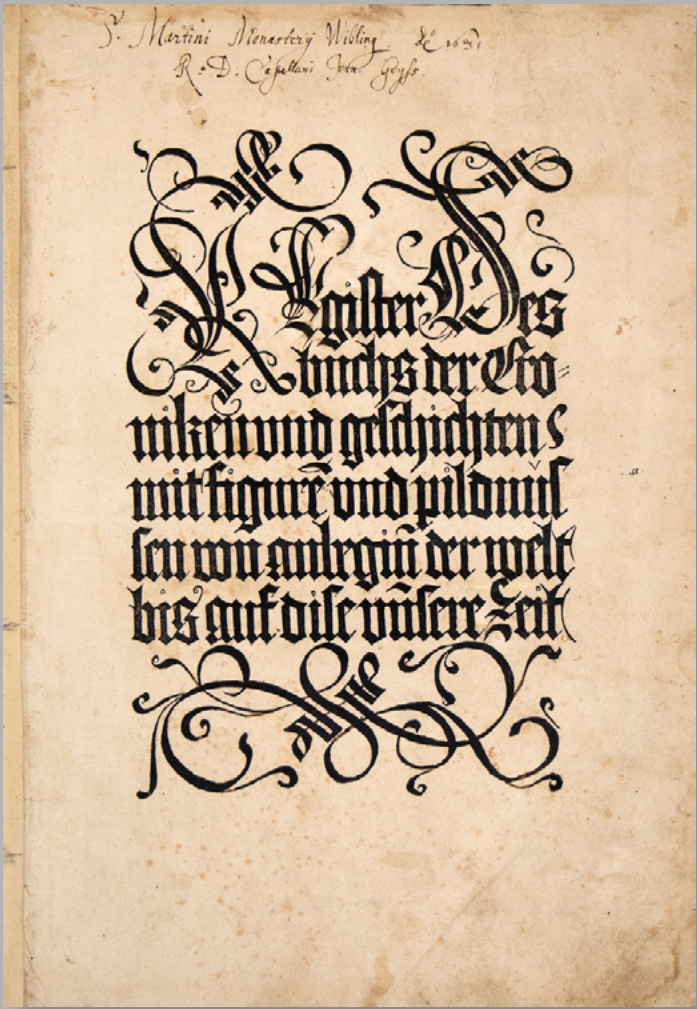 S. Martini Monasterij Wibling
R. D. Capellani Joan.
REgister Des
buchs der Cro-
niken vnd geschichten
mit figurẽ vnd pildnus
sen von anbegiñ der welt
bis auf dise vñsere Zeit